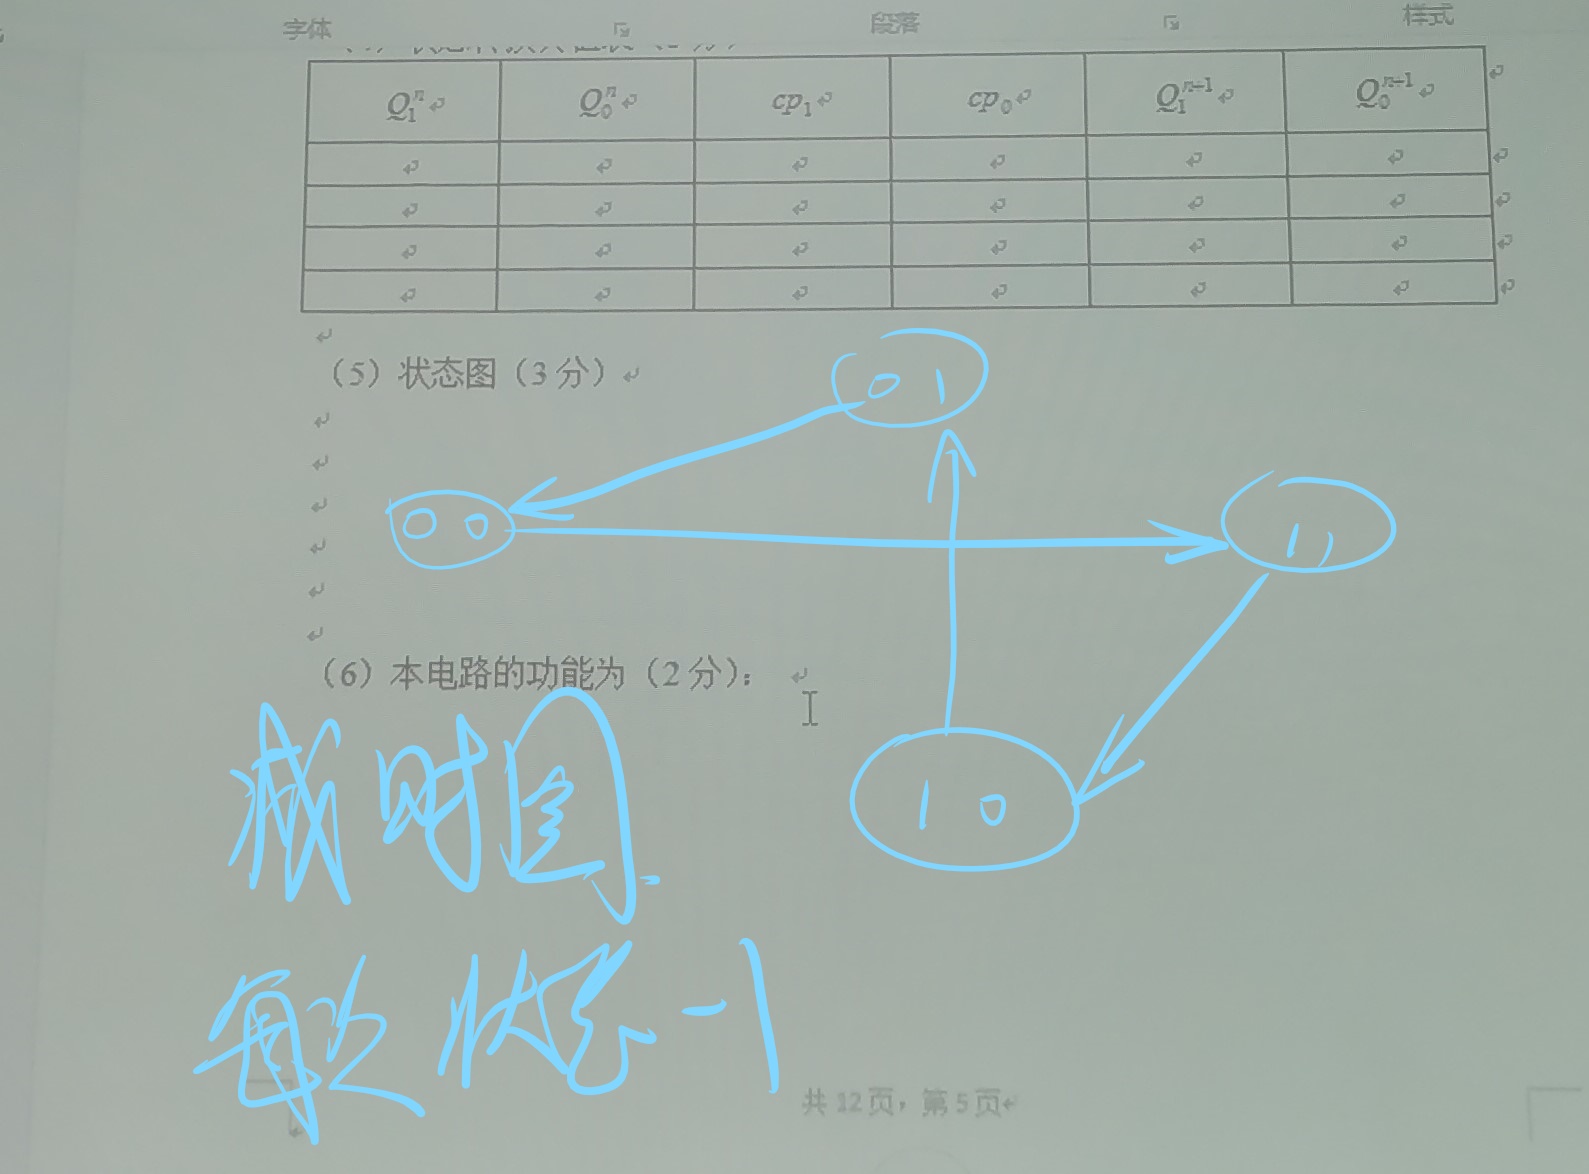 字体 段落 样式
Q₁ⁿ Q₀ⁿ cp₁ cp₀ Q₁ⁿ⁺¹ Q₀ⁿ⁺¹
（5）状态图（3 分）
0 1
0 0
1 1
1 0
（6）本电路的功能为（2 分）：
减时图
每次状态-1
共 12 页，第 5 页